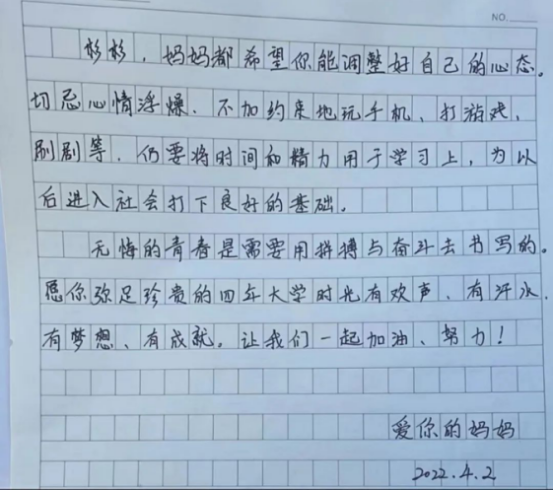 NO.
杉杉，妈妈都希望你能调整好自己的心态。
切忌心情浮燥、不加约束地玩手机、打游戏、
刷剧等，仍要将时间和精力用于学习上，为以
后进入社会打下良好的基础。
无悔的青春是需要用拼搏与奋斗去书写的。
愿你弥足珍贵的四年大学时光有欢声、有汗水、
有梦想、有成就。让我们一起加油、努力！
爱你的妈妈
2022.4.2